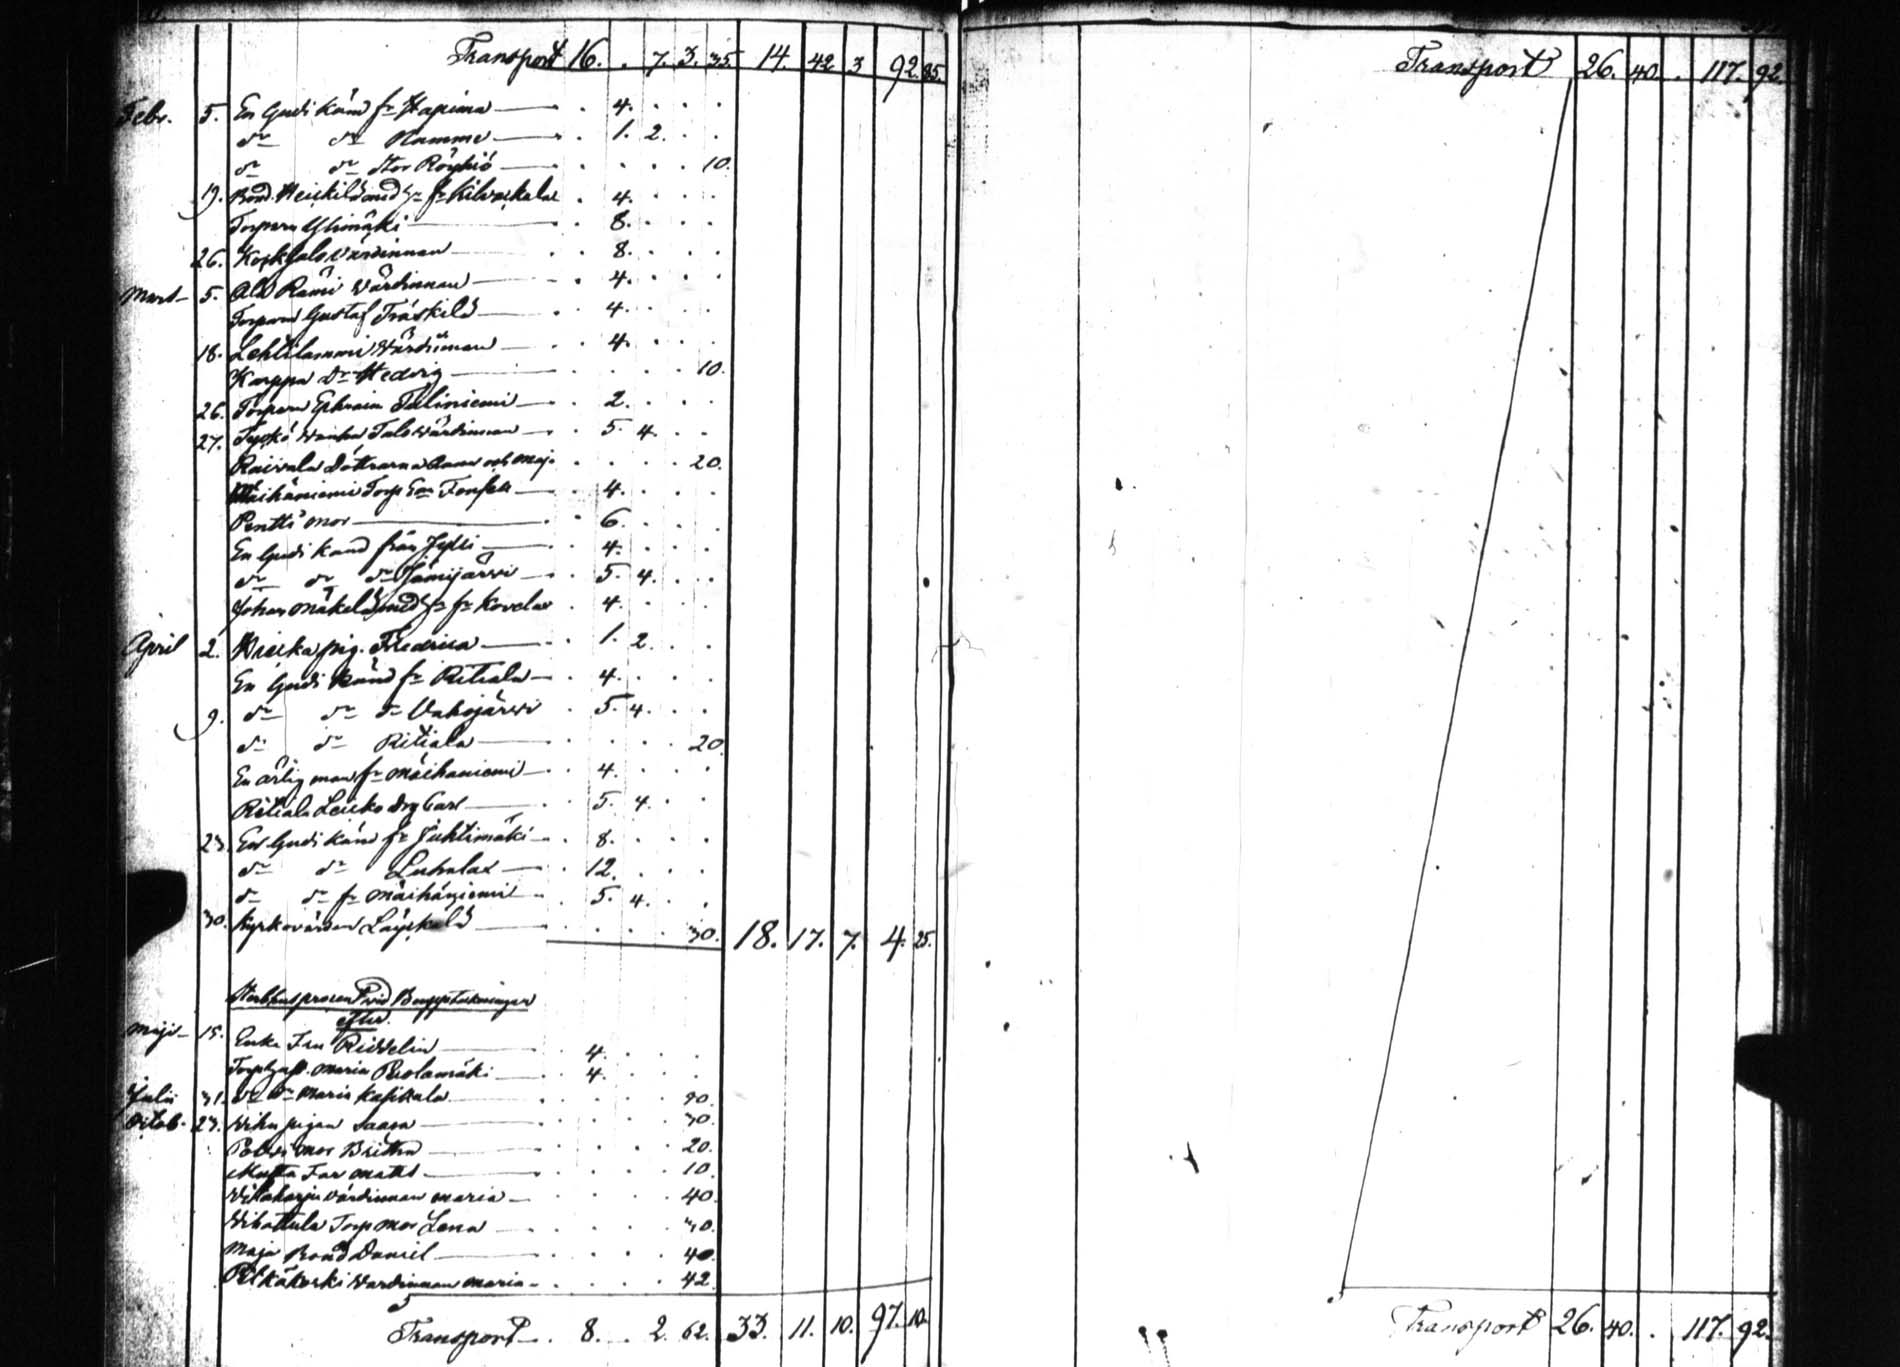 Transport 16. . 7. 3. 35. 14. 42. 3 92. 85.
Febr. 5. En Gudi känd fr Hapima . 4. . . .
dn dn Namme . 1. 2. . .
dn dn Stor Röyhiö . . . . . 10.
19. Bond. Heickilä med hn fr Kilvackala . 4. . . .
Torparn Ylimäki . 8. . . .
26. Koskjalo Värdinnan . 8. . . .
Mart. 5. Ala Rämi Värdinnan . 4. . . .
Torparn Gustaf Träskilä . 4. . . .
18. Lehtilammi Värdinnan . 4. . . .
Karppa Dr Hedvig . . . . . 10.
26. Torparn Ephraim Taliniemi . 2. . . .
27. Wanha Talo Värdinnan . 5. 4. . .
Raivala Döttrarna Anna och Maj. . . . . 20.
Mäihäniemi Torp En . 4. . . .
Pentti mor . 6. . . .
En Gudi känd från Jylli . 4. . . .
dn dn dn Jämijärvi . 5. 4. . .
Johan Mäkelä med hn fr Kovelax . 4. . . .
April 2. pig. Fredrica . 1. 2. . .
En Gudi känd fr Ritiala . 4. . . .
9. dn dn dn Vahojärvi . 5. 4. . .
dn dn Ritiala . . . . 20.
En ärlig man fr Mäihäniemi . 4. . . .
Ritiala Leicko Drg Carl . 5. 4. . .
23. En Gudi känd fr Juhtimäki . 8. . . .
dn dn Luhalax . 12. . . .
dn dn fr Mäihäniemi . 5. 4. . .
30. Kyrkovärden Läyskälä . . . . 30. 18. 17. 7. 4. 25.
Sterbhusprocent vid Bouppteckningar
efter.
Maji 15. Enke Fru Ridelin . 4. . . .
Maria Peolamäki . 4. . . .
Julii 31. dn dn Maria . . . . 20.
Octob. 23. pigan Saara . . . . 30.
mor Britha . . . . 20.
Far Matts . . . . 10.
Värdinnan Maria . . . . 40.
Torp mor Lena . . . . 30.
Maja Bond Daniel . . . . 40.
Pitkäkoski Värdinnan Maria . . . . 42.
Transport . 8. . 2. 62. 33. 11. 10. 97. 10.
Transport 26. 40. . 117. 92.
Transport 26. 40. . 117. 92.